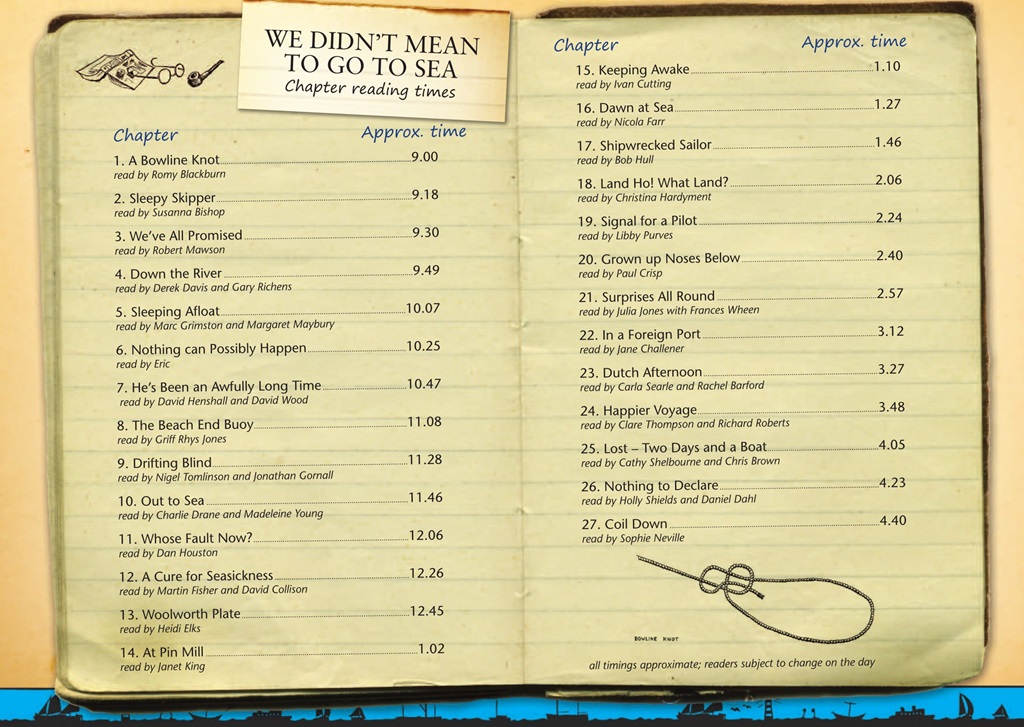 WE DIDN'T MEAN
TO GO TO SEA
Chapter reading times
Chapter Approx. time
1. A Bowline Knot 9.00
read by Romy Blackburn
2. Sleepy Skipper 9.18
read by Susanna Bishop
3. We've All Promised 9.30
read by Robert Mawson
4. Down the River 9.49
read by Derek Davis and Gary Richens
5. Sleeping Afloat 10.07
read by Marc Grimston and Margaret Maybury
6. Nothing can Possibly Happen 10.25
read by Eric
7. He's Been an Awfully Long Time 10.47
read by David Henshall and David Wood
8. The Beach End Buoy 11.08
read by Griff Rhys Jones
9. Drifting Blind 11.28
read by Nigel Tomlinson and Jonathan Gornall
10. Out to Sea 11.46
read by Charlie Drane and Madeleine Young
11. Whose Fault Now? 12.06
read by Dan Houston
12. A Cure for Seasickness 12.26
read by Martin Fisher and David Collison
13. Woolworth Plate 12.45
read by Heidi Elks
14. At Pin Mill 1.02
read by Janet King
Chapter Approx. time
15. Keeping Awake 1.10
read by Ivan Cutting
16. Dawn at Sea 1.27
read by Nicola Farr
17. Shipwrecked Sailor 1.46
read by Bob Hull
18. Land Ho! What Land? 2.06
read by Christina Hardyment
19. Signal for a Pilot 2.24
read by Libby Purves
20. Grown up Noses Below 2.40
read by Paul Crisp
21. Surprises All Round 2.57
read by Julia Jones with Frances Wheen
22. In a Foreign Port 3.12
read by Jane Challener
23. Dutch Afternoon 3.27
read by Carla Searle and Rachel Barford
24. Happier Voyage 3.48
read by Clare Thompson and Richard Roberts
25. Lost – Two Days and a Boat 4.05
read by Cathy Shelbourne and Chris Brown
26. Nothing to Declare 4.23
read by Holly Shields and Daniel Dahl
27. Coil Down 4.40
read by Sophie Neville
BOWLINE KNOT
all timings approximate; readers subject to change on the day